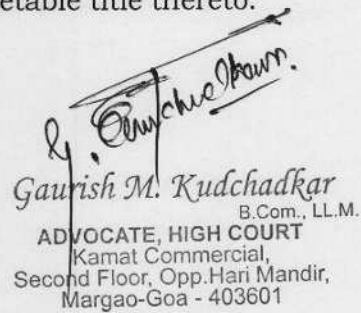 etable title thereto.
Gaurish M. Kudchadkar
B.Com., LL.M.
ADVOCATE, HIGH COURT
Kamat Commercial,
Second Floor, Opp.Hari Mandir,
Margao-Goa - 403601